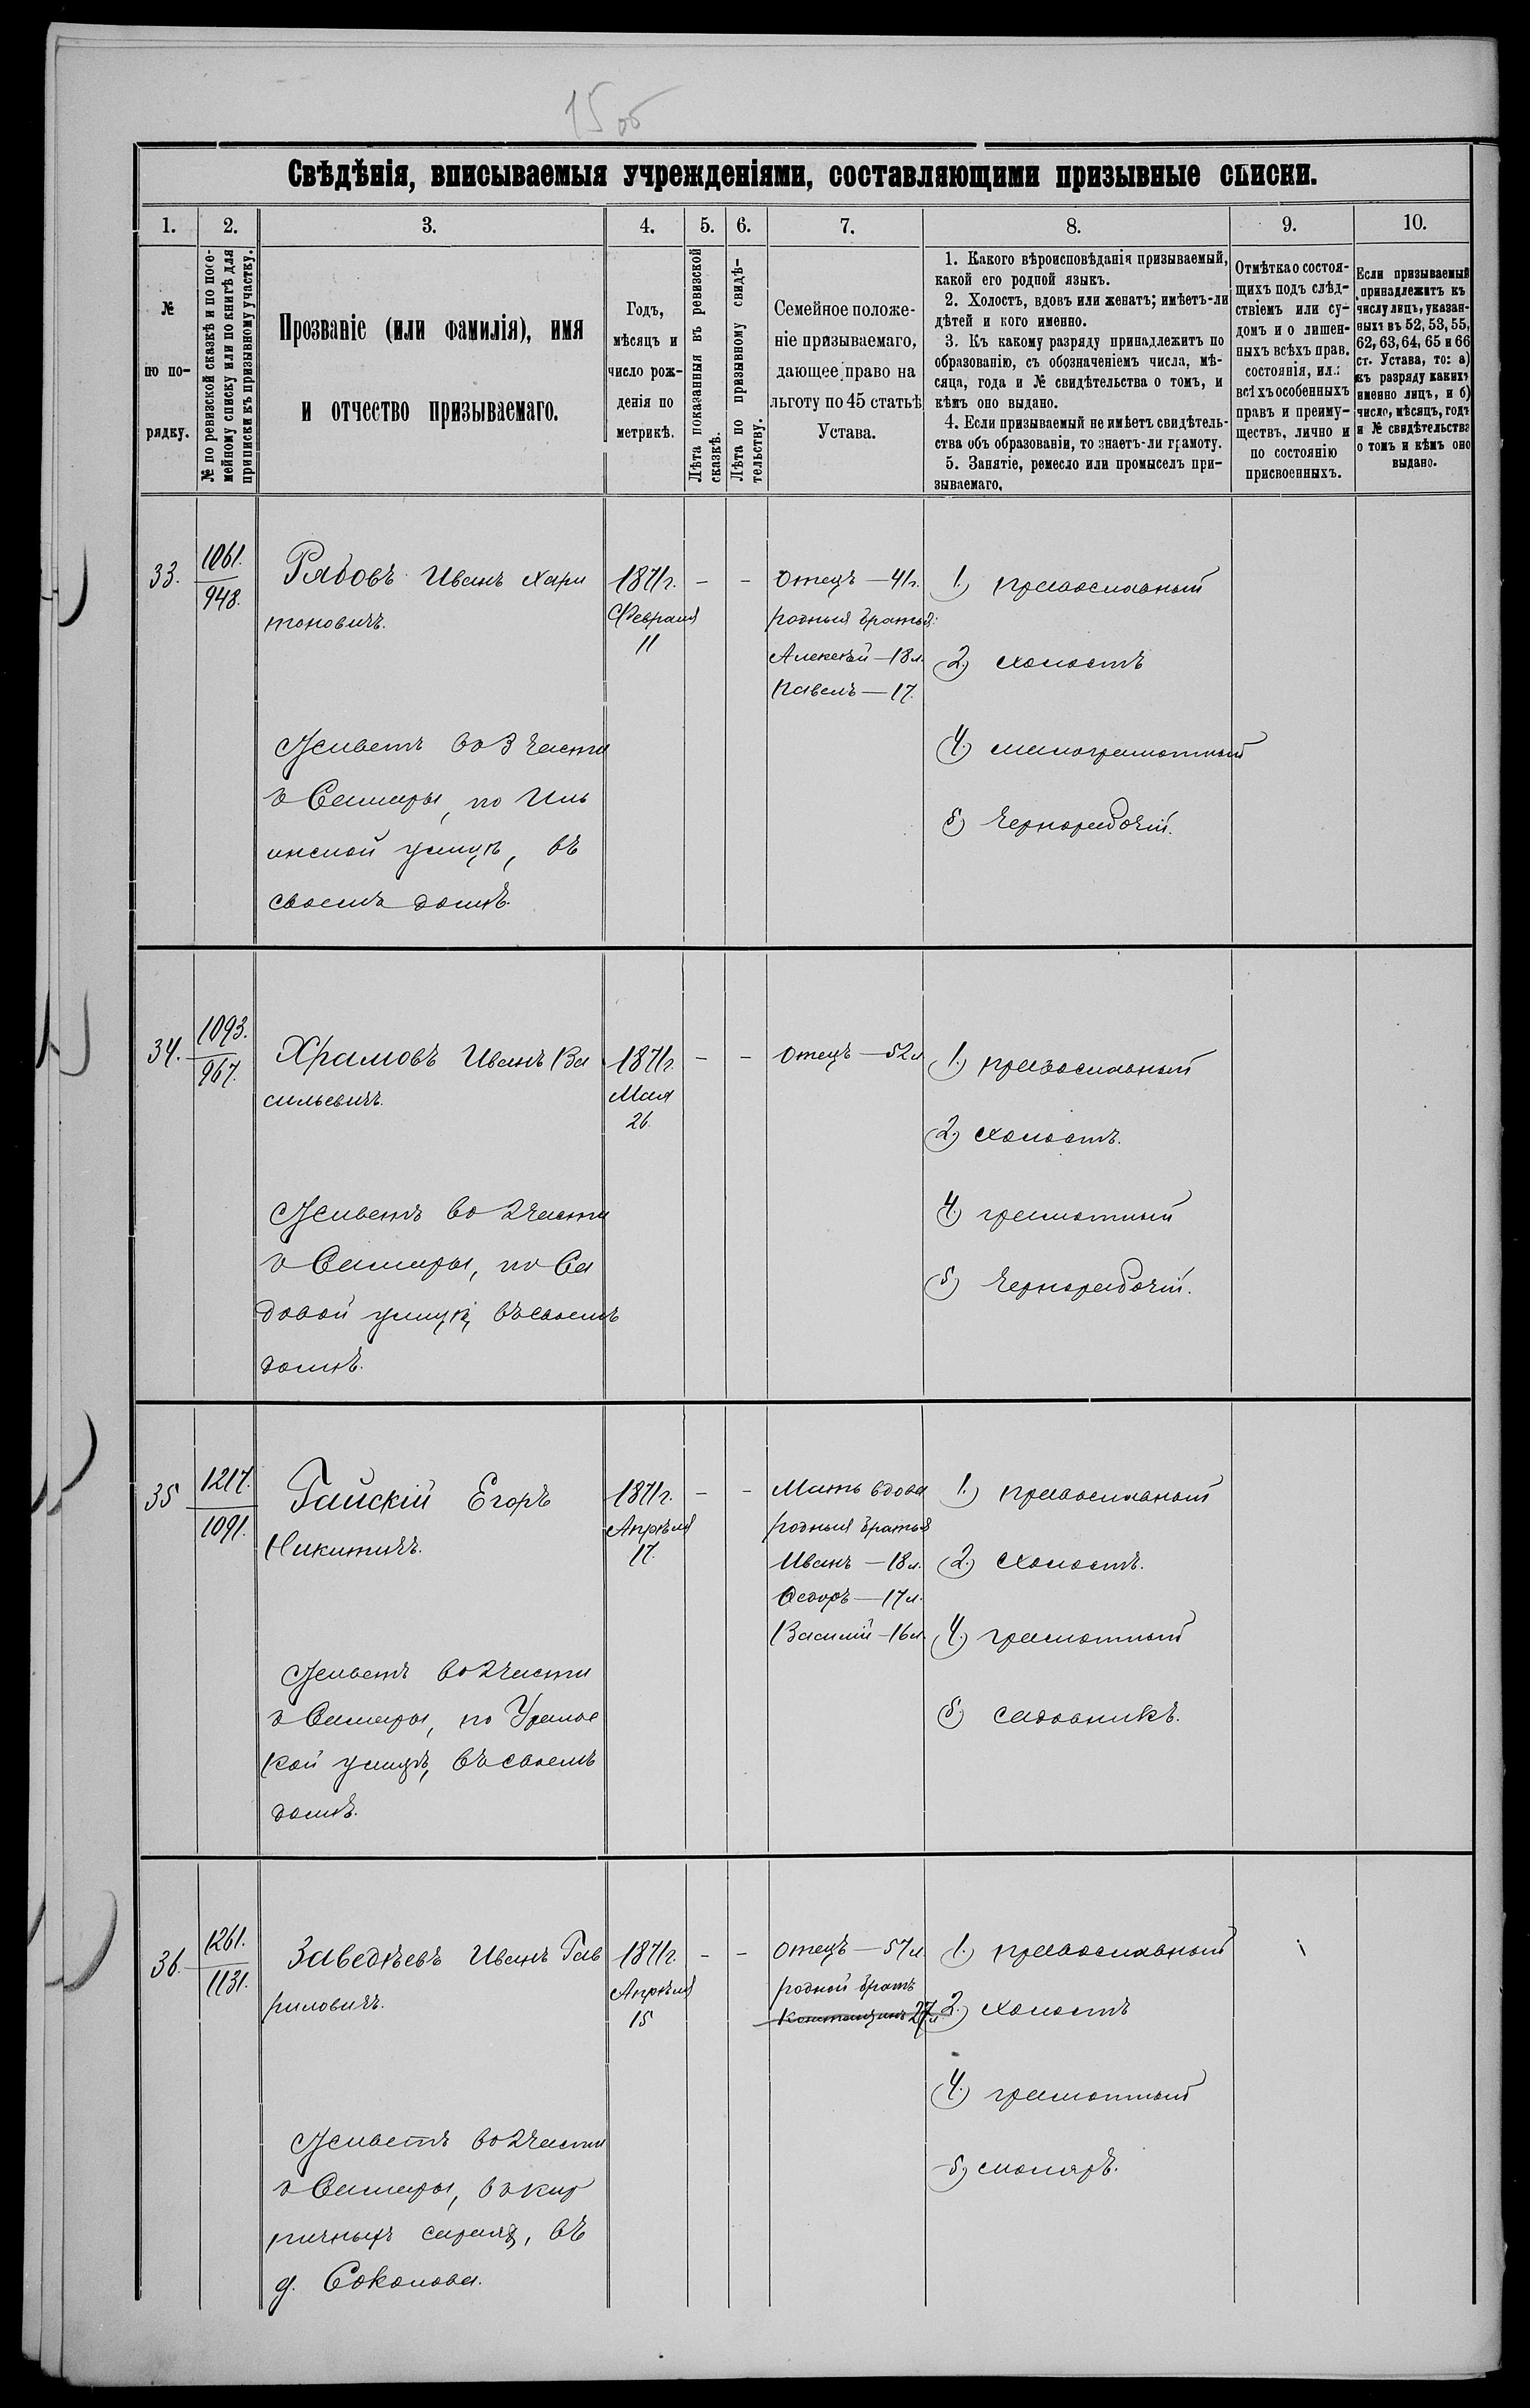 15об
Свѣдѣнія, вписываемыя учрежденіями, составляющими призывные списки.
1. 2. 3. 4. 5. 6. 7. 8. 9. 10.
№
по по-
рядку.
№ по ревизской сказкѣ и по посе-
мейному списку или по книгѣ для
приписки къ призывному участку.
Прозваніе (или фамилія), имя
и отчество призываемаго.
Годъ,
мѣсяцъ и
число рож-
денія по
метрикѣ.
Лѣта показанныя въ ревизской
сказкѣ.
Лѣта по призывному свидѣ-
тельству.
Семейное положе-
ніе призываемаго,
дающее право на
льготу по 45 статьѣ
Устава.
1. Какого вѣроисповѣданія призываемый,
какой его родной языкъ.
2. Холостъ, вдовъ или женатъ; имѣетъ-ли
дѣтей и кого именно.
3. Къ какому разряду принадлежитъ по
образованію, съ обозначеніемъ числа, мѣ-
сяца, года и № свидѣтельства о томъ, и
кѣмъ оно выдано.
4. Если призываемый не имѣетъ свидѣтель-
ства объ образованіи, то знаетъ-ли грамоту.
5. Занятіе, ремесло или промыселъ при-
зываемаго.
Отмѣтка о состоя-
щихъ подъ слѣд-
ствіемъ или су-
домъ и о лишен-
ныхъ всѣхъ прав.
состоянія, ил.:
всѣхъ особенныхъ
правъ и преиму-
ществъ, лично и
по состоянію
присвоенныхъ.
Если призываемый
принадлежитъ къ
числу лицъ, указан-
ныхъ въ 52, 53, 55,
62, 63, 64, 65 и 66
ст. Устава, то: а)
къ разряду какихъ
именно лицъ, и б)
число, мѣсяцъ, годъ
и № свидѣтельства
о томъ и кѣмъ оно
выдано.
33.
1061.
948.
Рябовъ Иванъ Хари
тоновичъ.
Живетъ во 3 части
г Самары, по Иль
инской улицѣ, въ
своемъ домѣ.
1871г.
Февраля
11
-
-
Отецъ — 41г.
родныя братья:
Алексѣй — 18л.
Павелъ — 17.
1.) православный
2.) холостъ
4.) малограмотный
5) Чернорабочій.
34.
1093.
967.
Храмовъ Иванъ Ва
сильевичъ.
Живетъ во 2 части
г Самары, по Са
довой улицѣ, въ своемъ
домѣ.
1871г.
Мая
26.
-
-
Отецъ — 52л
1.) православный
2.) холостъ.
4.) грамотный
5) Чернорабочій.
35
1217.
1091.
Гайскій Егоръ
Никитичъ.
Живетъ во 2 части
г Самары, по Уральс
кой улицѣ, въ своемъ
домѣ.
1871г.
Апрѣля
17.
-
-
Мать вдова
родныя братья
Иванъ — 18л.
Ѳедоръ — 17л.
Василій — 16л.
1.) православный
2.) холостъ.
4.) грамотный
5) садовникъ.
36.
1261.
1131.
Заведѣевъ Иванъ Гав
риловичъ.
Живетъ во 2 части
г Самары, въ кир
пичныхъ сараях, въ
д. Соколова.
1871г.
Апрѣля
15
-
-
Отецъ — 57л
родной братъ
27л
1.) православный
2.) холостъ
4.) грамотный
5.) столяръ.